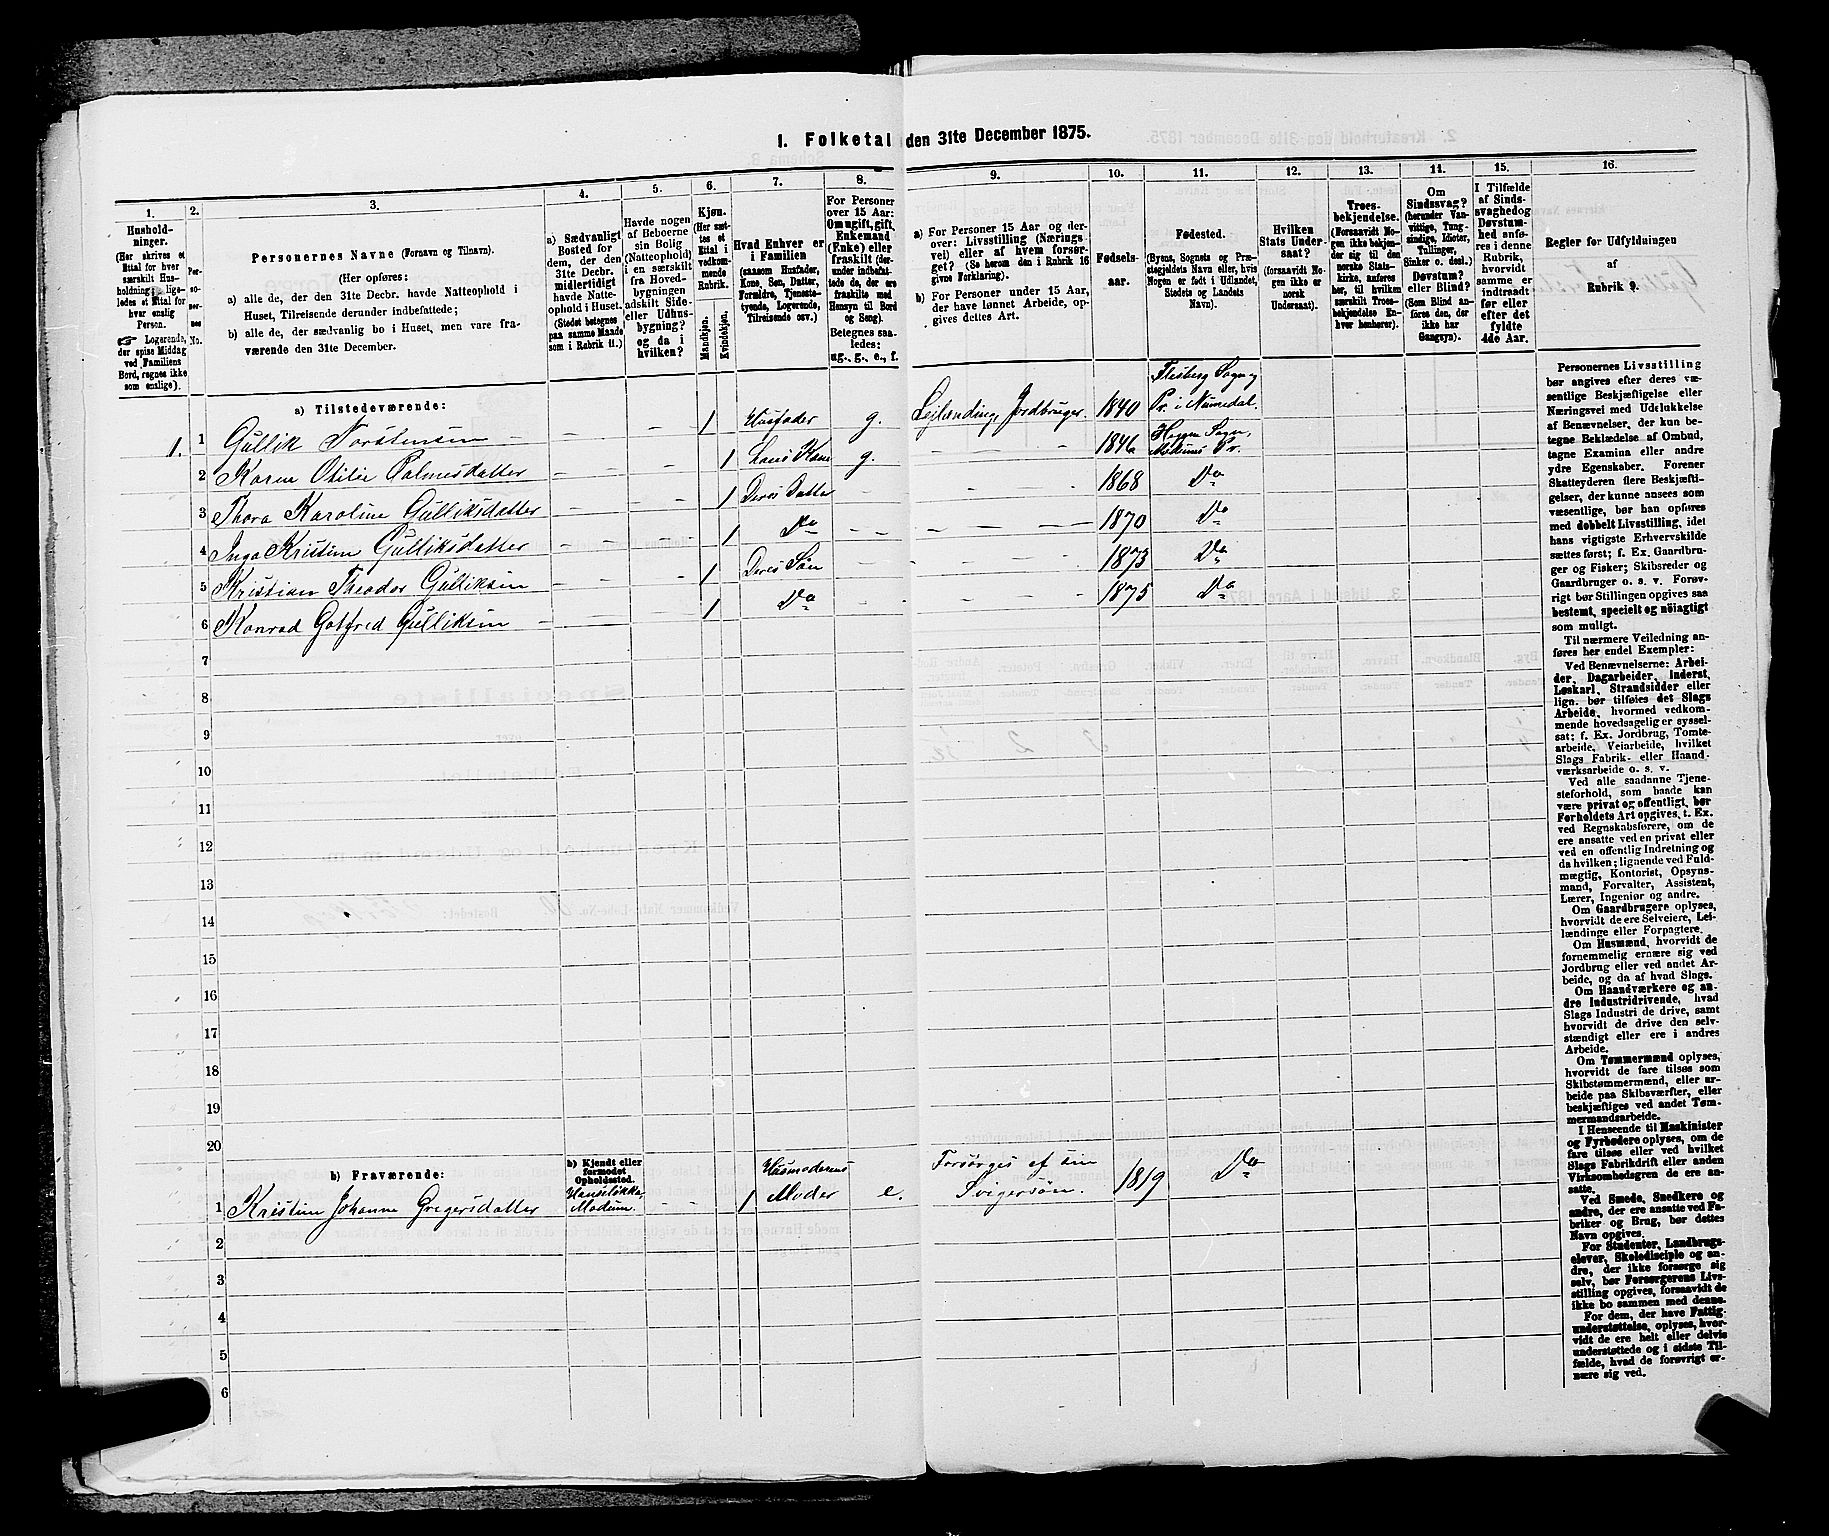 1. Folketal den 31te December 1875.
1. 2. 3. 4. 5. 6. 7. 8. 9. 10. 11. 12. 13. 14. 15. 16.
Hushold-
ninger.
(Her skrives et
Ettal for hver
særskilt Hus-
holdning; lige-
ledes et Ettal for
hver enslig
Person.
☞ Logerende,
der spise Middag
ved Familiens
Bord, regnes ikke
som enslige).
Per-
so-
ner-
nes
No.
Personernes Navne (Fornavn og Tilnavn).
(Her opføres:
a) alle de, der den 31te Decbr. havde Natteophold i
Huset, Tilreisende derunder indbefattede;
b) alle de, der sædvanlig bo i Huset, men vare fra-
værende den 31te December.
a) Sædvanligt
Bosted for
dem, der den
31te Decbr.
midlertidigt
havde Natte-
ophold i Huset.
(Stedet betegnes
paa samme Maade
som i Rubrik 11.)
Havde nogen
af Beboerne
sin Bolig
(Natteophold)
i en særskilt
fra Hoved-
bygningen
adskilt Side-
eller Udhus-
bygning?
og da i
hvilken?
Kjøn.
(Her sæt-
tes et
Ettal i
vedkom-
mende
Rubrik.
Mandkjøn.
Kvindekjøn.
Hvad Enhver er
i Familien
(saasom Husfader,
Kone, Søn, Datter,
Forældre, Tjeneste-
tyende, Logerende,
Tilreisende osv.)
For Personer
over 15 Aar:
Om ugift, gift,
Enkemand
(Enke) eller
fraskilt (der-
under indbefat-
tede de, der ere
fraskilte med
Hensyn til Bord
og Seng).
Betegnes saa-
ledes:
ug., g., e., f.
a) For Personer 15 Aar og der-
over: Livsstilling (Nærings-
vei) eller af hvem forsør-
get? (Se herom den i Rubrik 16
givne Forklaring).
b) For Personer under 15 Aar,
der have lønnet Arbeide, op-
gives dettes Art.
Fødsels-
aar.
Fødested.
(Byens, Sognets og Præ-
stegjeldets Navn eller, hvis
Nogen er født i Udlandet,
Stedets og Landets
Navn).
Hvilken
Stats Under-
saat?
(forsaavidt No-
gen ikke er
norsk
Undersaat).
Troes-
bekjendelse.
(Forsaavidt No-
gen ikke bekjen-
der sig til den
norske Stats-
kirke, anføres
her, til hvilken
særskilt Troes-
bekjendelse En-
hver henhører).
Om
Sindssvag?
(herunder Van-
vittige, Tung-
sindige, Idioter,
Tullinger,
Sinker o. desl.)
Døvstum?
eller Blind?
(Som Blind an-
føres den, der
ikke har
Gangsyn).
I Tilfælde
af Sinds-
svaghed og
Døvstum-
hed anfø-
res i denne
Rubrik,
hvorvidt
samme er
indtraadt
før eller
efter det
fyldte
4de Aar.
Regler for Udfyldningen
af
Rubrik 9.
a) Tilstedeværende:
1. 1 Gullik Torstensen - - - 1 Husfader g. Leilænding, Jordbruger. 1840 Flesberg Sogn og Pr. i Numedal.
2 Karen Otilie Palmesdatter - - - 1 Hans Kone g. - - - 1846 Heggen Sogn, Modums Pr.
3 Thora Karoline Gulliksdatter - - - 1 Deres Datter - - 1868 Do
4 Inga Kristine Gulliksdatter - - - - 1 Do - - - - 1870 Do
5 Kristian Theodor Gulliksen - - - 1 Deres Søn - - - - 1873 Do
6 Konrad Gotfred Gulliksen - - - 1 Do - - - - 1875 Do
7
8
9
10
11
12
13
14
15
16
17
18
19
20
b) Fraværende:
b) Kjendt eller
formodet
Opholdssted.
1 Kristine Johanne Gregersdatter Hanseløkka, Modum. - - 1 Husmoderens Moder e. Forsørges af sin Svigersøn. 1819 Do
2
3
4
5
6
Personernes Livsstilling
bør angives efter deres væ-
sentlige Beskjæftigelse eller
Næringsvei med Udelukkelse
af Benævnelser, der kun be-
tegne Beklædelse af Ombud,
tagne Examina eller andre
ydre Egenskaber. Forener
Skatteyderen flere Beskjæfti-
gelser, der kunne ansees som
væsentlige, bør han opføres
med dobbelt Livsstilling, idet
hans vigtigste Erhvervskilde
sættes først; f. Ex. Gaardbru-
ger og Fisker; Skibsreder og
Gaardbruger o. s. v. Forøv-
rigt bør Stillingen opgives saa
bestemt, specielt og nöiagtigt
som muligt.
Til nærmere Veiledning an-
føres her endel Exempler:
Ved Benævnelserne: Arbei-
der, Dagarbeider, Inderst,
Løskarl, Strandsidder eller
lign. bør tilføies det Slags
Arbeide, hvormed vedkom-
mende hovedsagelig er syssel-
sat; f. Ex. Jordbrug, Tomte-
arbeide, Veiarbeide, hvilket
Slags Fabrik- eller Haand-
værksarbeide o. s. v.
Ved alle saadanne Tjene-
steforhold, som baade kan
være privat og offentligt, bør
Forholdets Art opgives, t. Ex.
ved Regnskabsførere, om de
ere ansatte ved en privat eller
ved en offentlig Indretning og
da hvilken; lignende ved Fuld-
mægtig, Kontorist, Opsyns-
mand, Forvalter, Assistent,
Lærer, Ingeniør og andre.
Om Gaardbrugere oplyses,
hvorvidt de ere Selveiere, Lei-
lændinge eller Forpagtere.
Om Husmænd, hvorvidt de
fornemmelig ernære sig ved
Jordbrug eller ved andet Ar-
beide, og da af hvad Slags.
Om Haandværkere og an-
dre Industridrivende, hvad
Slags Industri de drive, samt
hvorvidt de drive den selv-
stændigt eller ere i andres
Arbeide.
Om Tømmermænd oplyses,
hvorvidt de fare tilsøs som
Skibstømmermænd, eller ar-
beide paa Skibsværfter, eller
beskjæftiges ved andet Tøm-
mermandsarbeide.
I Henseende til Maskinister
og Fyrbødere oplyses, om de
fare tilsøs eller ved hvilket
Slags Fabrikdrift eller anden
Virksomhedsgren de ere an-
satte.
Ved Smede, Snedkere og
andre, der ere ansatte ved Fa-
briker og Brug, bør dettes
Navn opgives.
For Studenter, Landbrugs-
elever, Skoledisciple og an-
dre, der ikke forsørge sig
selv, bør Forsørgerens Livs-
stilling opgives, forsaavidt de
ikke bo sammen med denne.
For dem, der have Fattig-
understøttelse, oplyses, hvor-
vidt de ere helt eller delvis
understøttede og i sidste Til-
fælde, hvad de forøvrigt er-
nære sig ved.